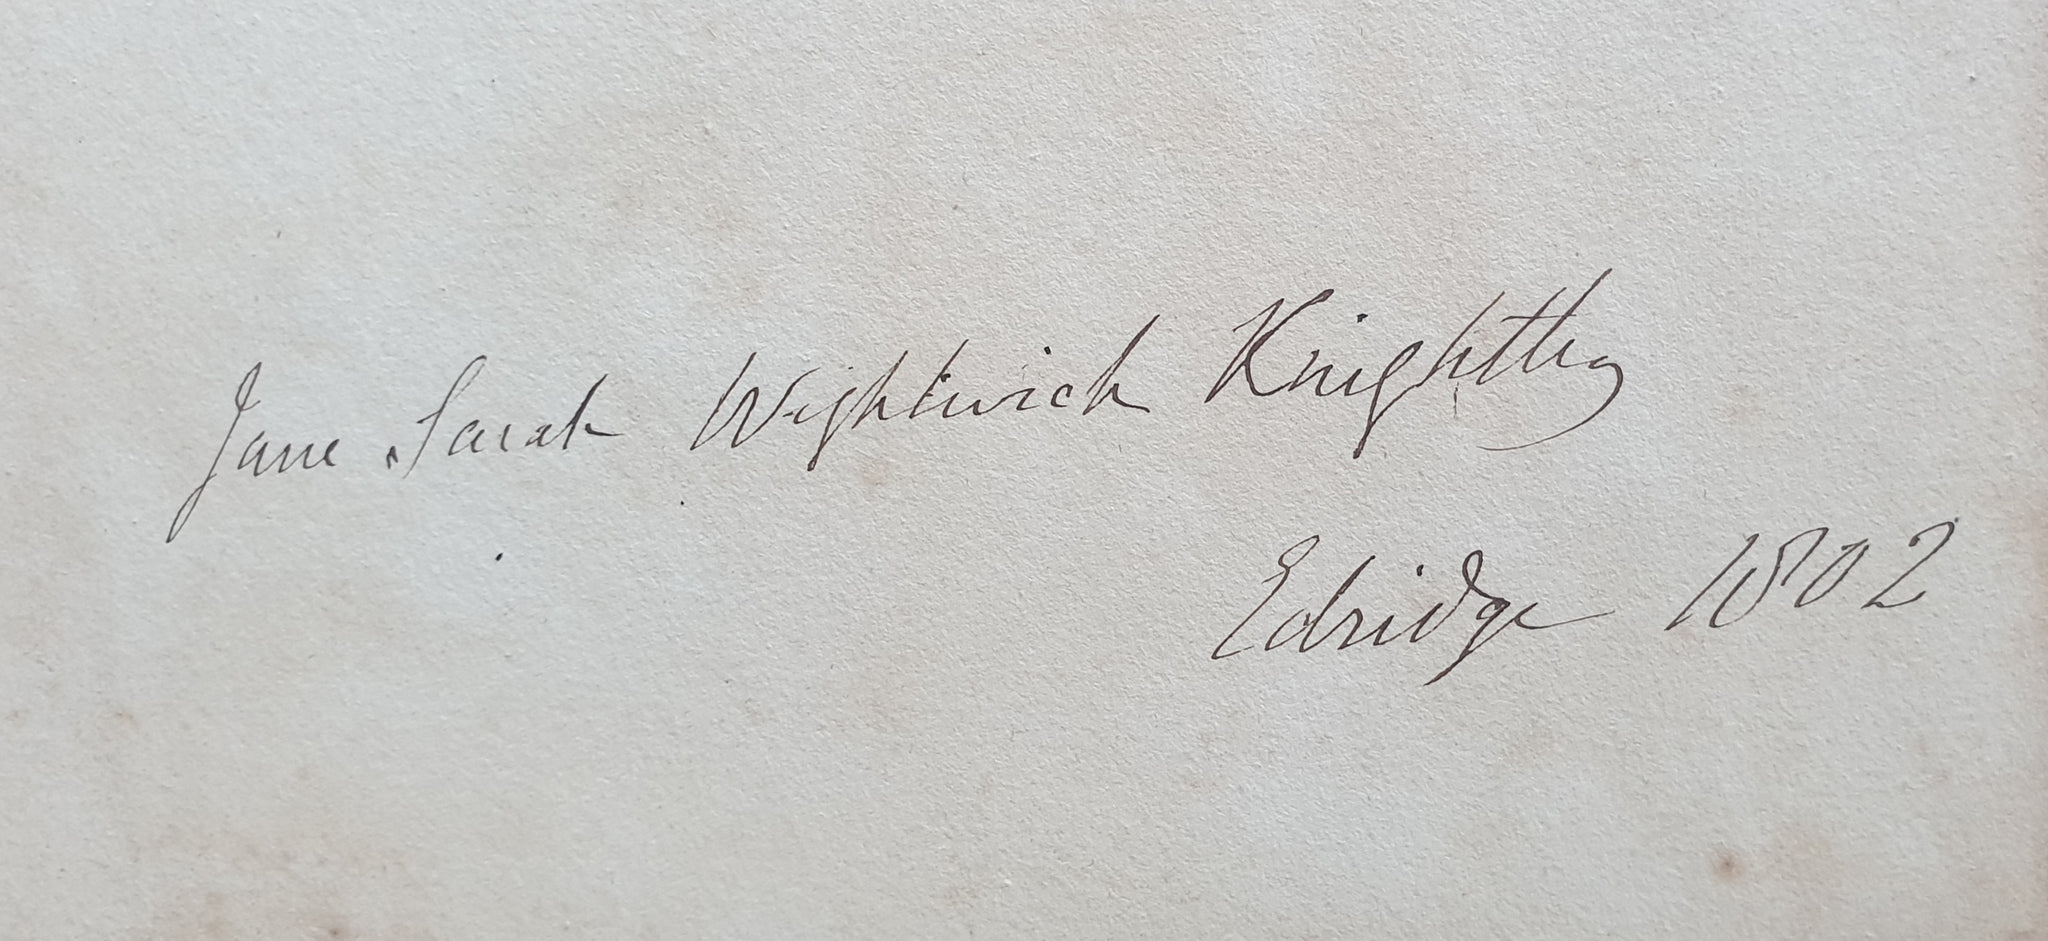 Jane Sarah Wightwick Knightley
Edridge 1802